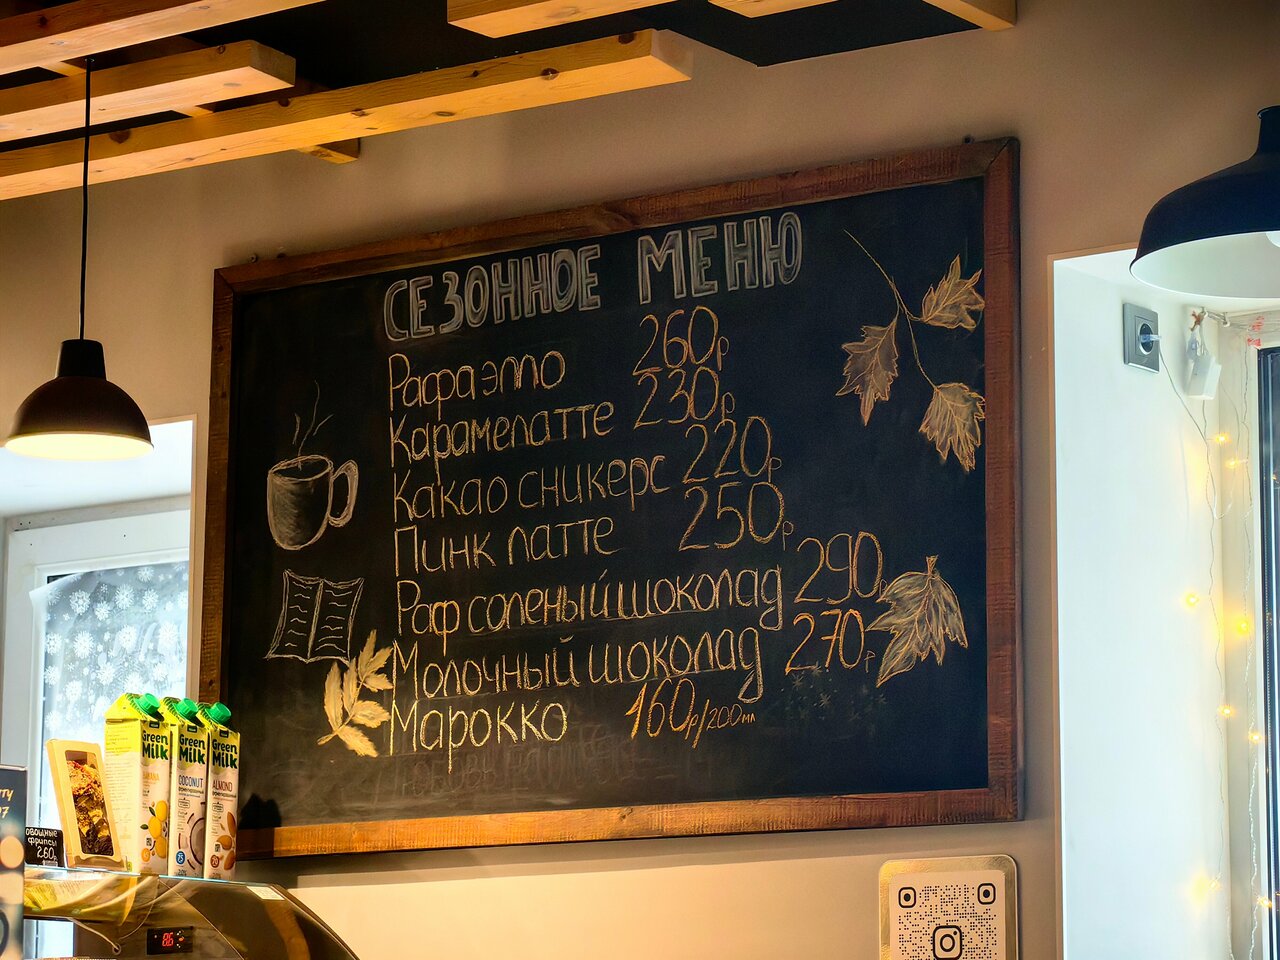 СЕЗОННОЕ МЕНЮ
Рафаэлло 260р
Карамелатте 230р
Какао сникерс 220р
Пинк латте 250р
Раф соленый шоколад 290р
Молочный шоколад 270р
Марокко 160р/200мл
Green Milk
Green Milk
COCONUT
Green Milk
ALMOND
фрипсы
260р